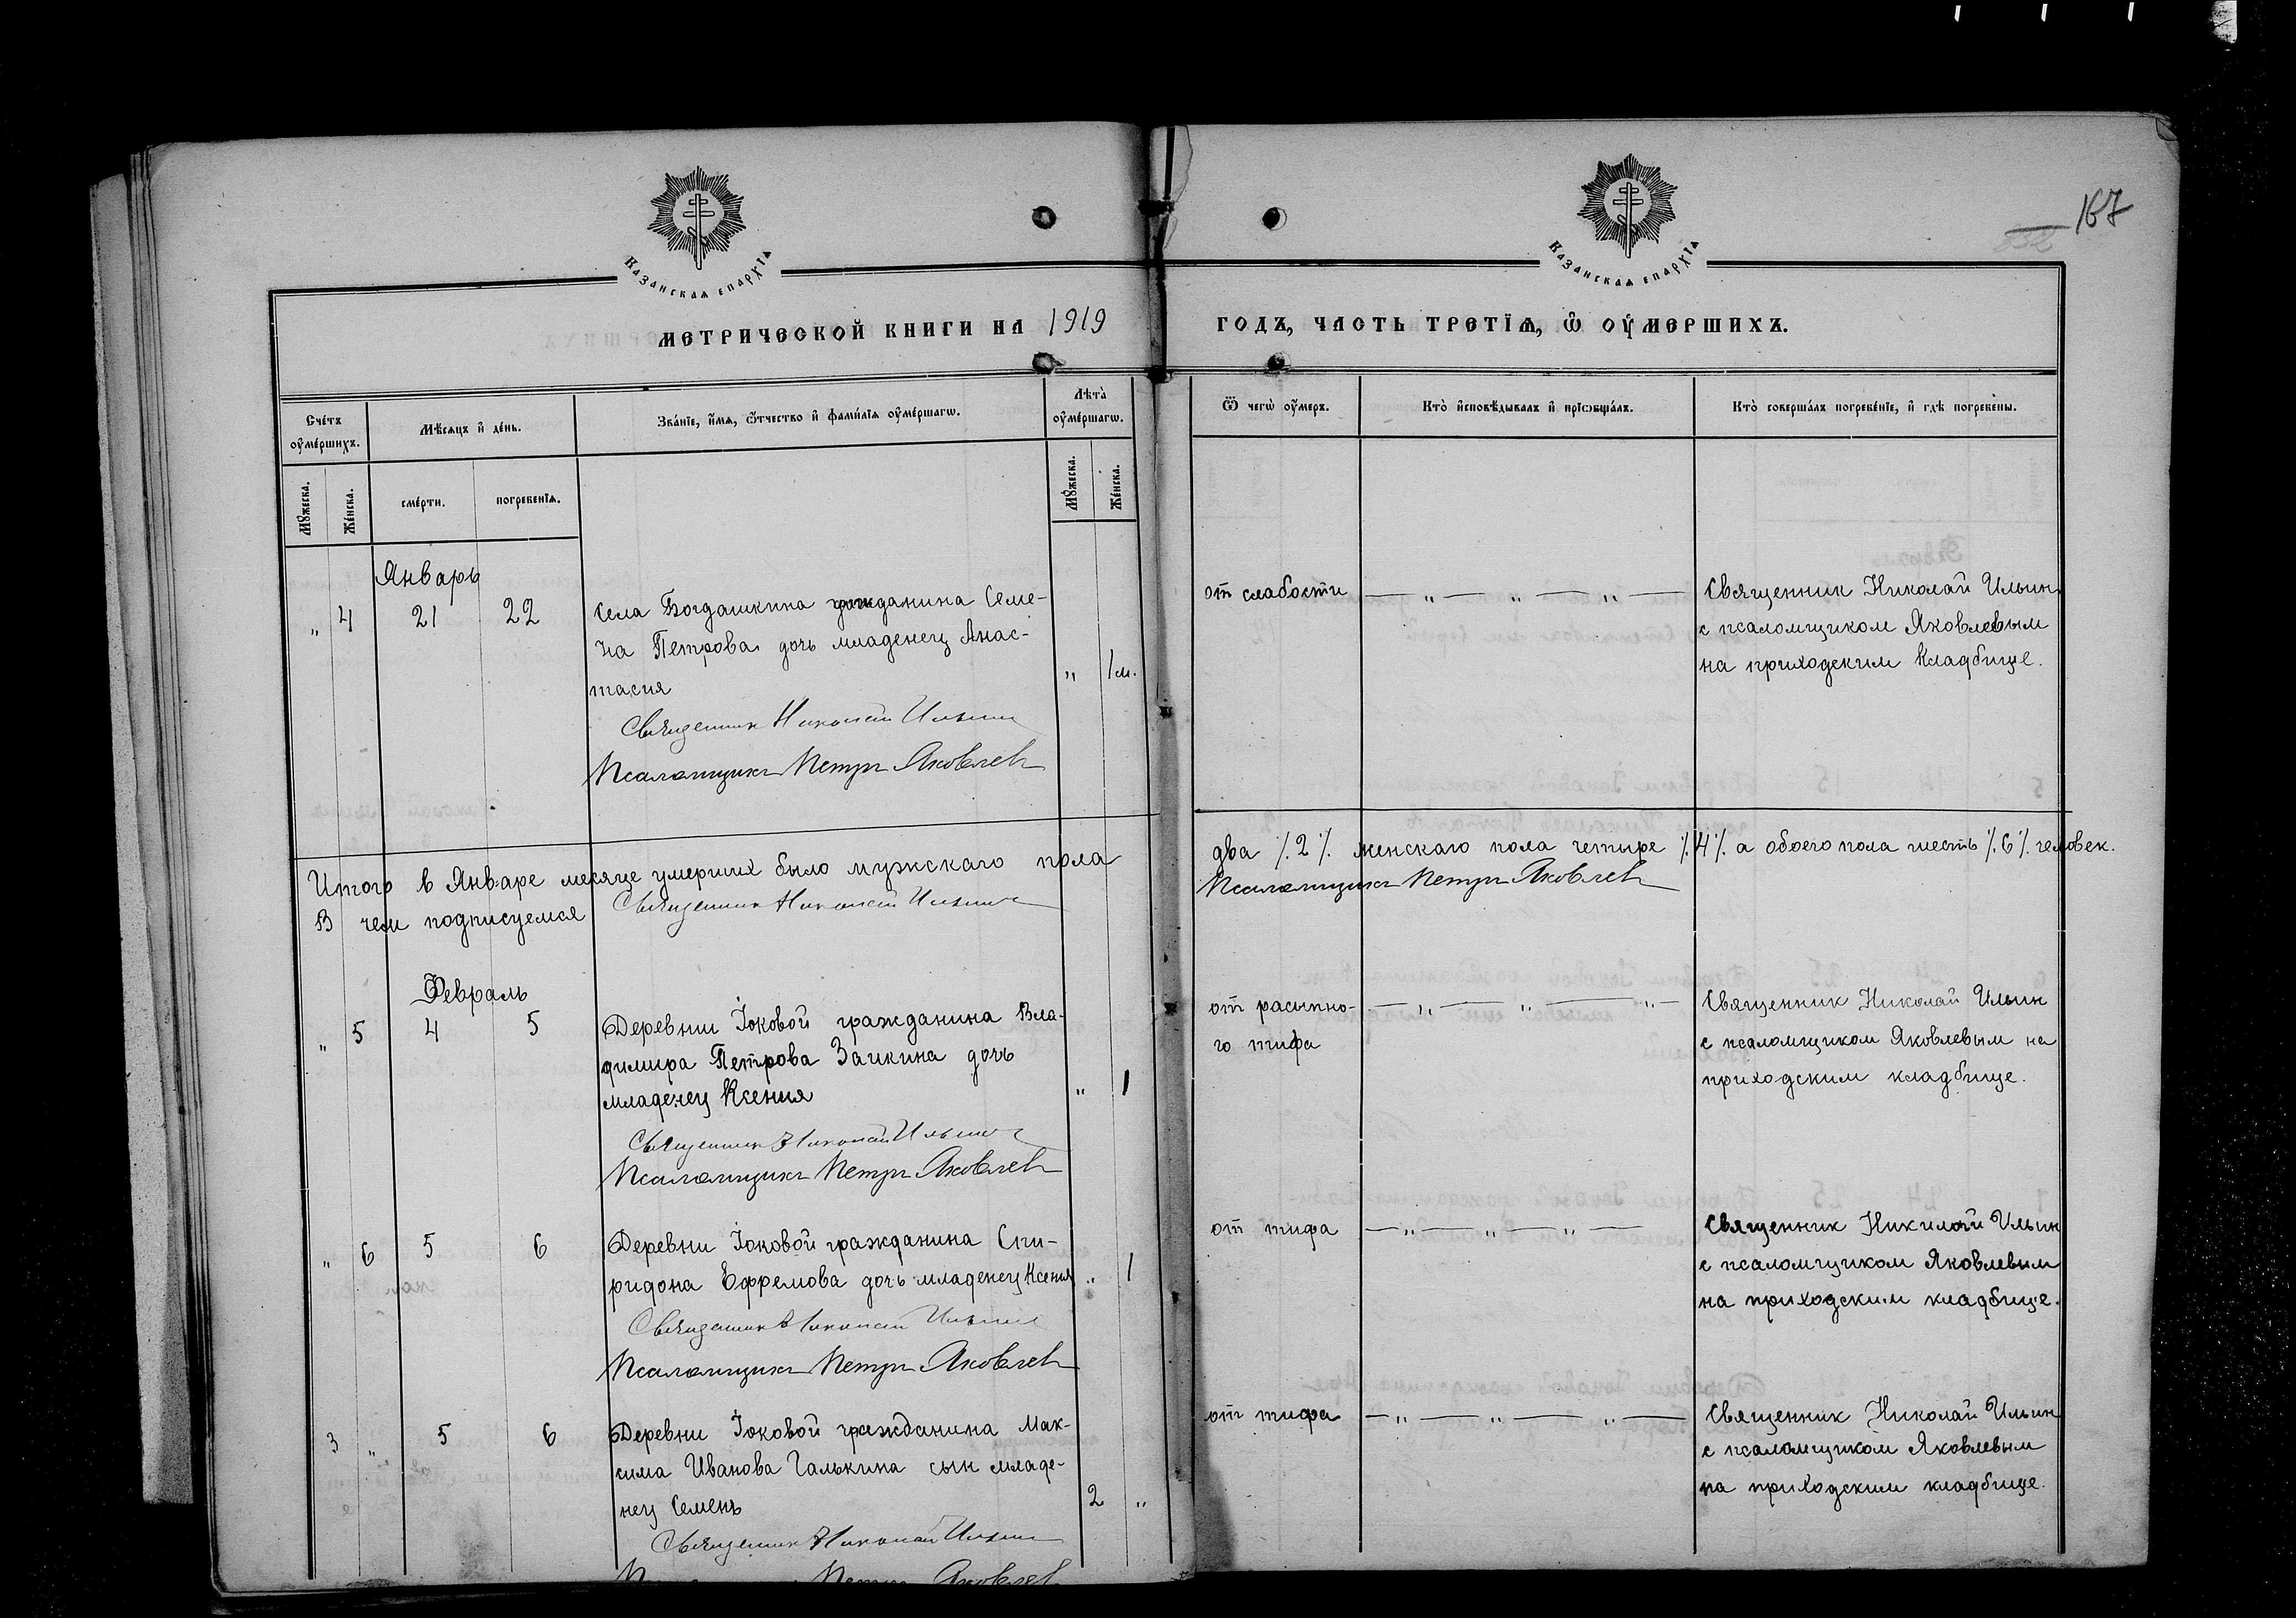 167
Казанская епархїѧ
Казанская епархїѧ
Метрической книги на 1919
годъ, часть третїѧ, ѡ оумершихъ.
Счетъ оумершихъ.
Мѣсяцъ и день.
Званїе, имѧ, ѿчество и фамилїѧ оумершагѡ.
Лѣта оумершагѡ.
Ѿ чегѡ оумеръ.
Кто исповѣдывалъ и прїѡбщалъ.
Кто совершалъ погребенїе, и гдѣ погребены.
Мꙋжеска.
Женска.
смерти.
погребенїѧ.
Мꙋжеска.
Женска.
Январь
„ 4 21 22
Села Богдашкина гражданина Семе-
на Петрова дочь младенец Анас-
тасия
„ 1 м.
Священник Николай Ильин
Псаломщикъ Петръ Яковлев
от слабости — „ — „ — „ —
Священник Николай Ильин
с псаломщиком Яковлевым
на приходским кладбище.
Итого в Январе месяце умерших было мужскаго пола
два ٪ 2 ٪ женскаго пола четыре ٪ 4 ٪ а обоего пола шесть ٪ 6 ٪ человек.
В чем подписуемся Священник Николай Ильин
Псаломщикъ Петръ Яковлев
Февраль
„ 5 4 5
Деревни Іоковой гражданина Вла-
димира Петрова Заикина дочь
младенец Ксения
„ 1
Священник Николай Ильин
Псаломщикъ Петръ Яковлев
от расыпно-
го тифа
— „ — „ — „ —
Священник Николай Ильин
с псаломщиком Яковлевым на
приходским кладбище.
„ 6 5 6
Деревни Іоковой гражданина Спи-
ридона Ефремова дочь младенец Ксения
„ 1
Священник Николай Ильин
Псаломщикъ Петръ Яковлев
от тифа — „ — „ — „ —
Священник Николай Ильин
с псаломщиком Яковлевым
на приходским кладбище.
3 „ 5 6
Деревни Іоковой гражданина Мак-
сима Иванова Галькина сын младе-
нец Семенъ
2 „
Священник Николай Ильин
Петръ Яковлев
от тифа — „ — „ — „ —
Священник Николай Ильин
с псаломщиком Яковлевым
на приходским кладбище.